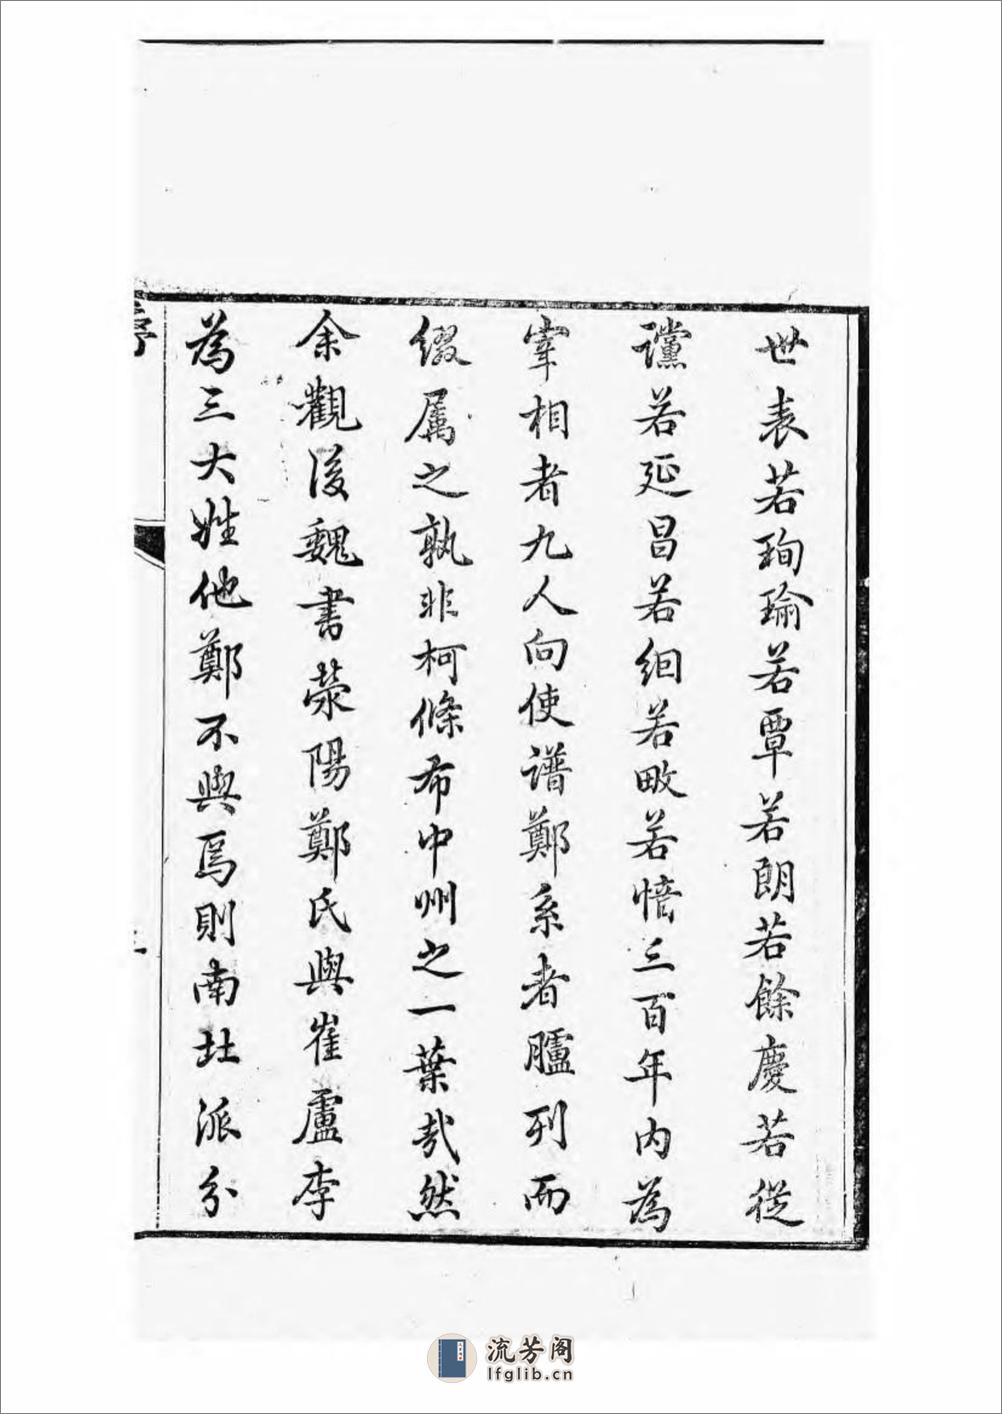 世表若珣瑜若覃若朗若餘慶若從
讜若延昌若絪若畋若愔三百年內為
宰相者九人向使譜鄭系者臚列而
綴属之孰非柯條布中州之一葉㢤然
余觀後魏書滎陽鄭氏與崔盧李
為三大姓他鄭不與焉則南北派分
流芳阁
lfglib.cn